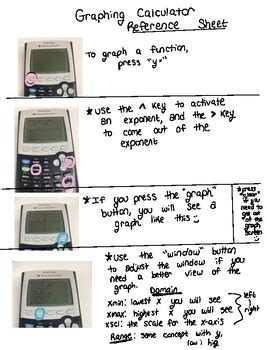 Graphing Calculator
Reference Sheet
To graph a function,
press "y="
*Use the ^ key to activate
an exponent, and the > key
to come out of the
exponent
*If you press the "graph"
button, you will see a
graph like this
*press
"clear"
if you
need to
get out
of the
graph
screen
*Use the "window" button
to adjust the window if you
need a better view of the
graph.
Domain:
xmin: lowest x you will see
xmax: highest x you will see
xscl: the scale for the x-axis
left
right
Range: same concept with y,
low : hig